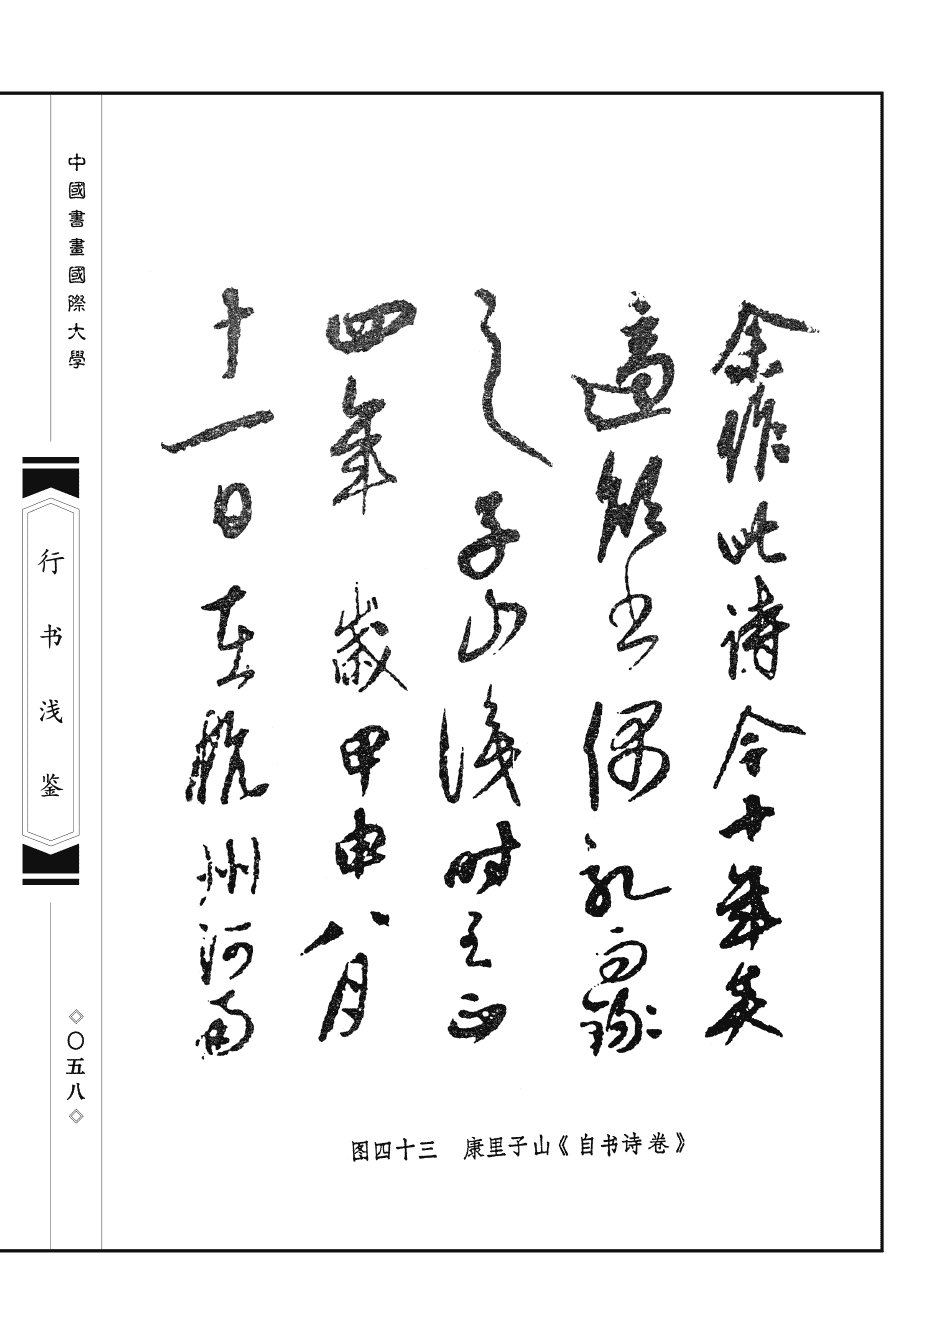 余作此詩今十年矣
適欲書偶記而錄
之子山識時至正
四年歲甲申八月
十一日在杭州河南
图四十三　康里子山《自书诗卷》
中國書畫國際大學
行书浅鉴
◇〇五八◇